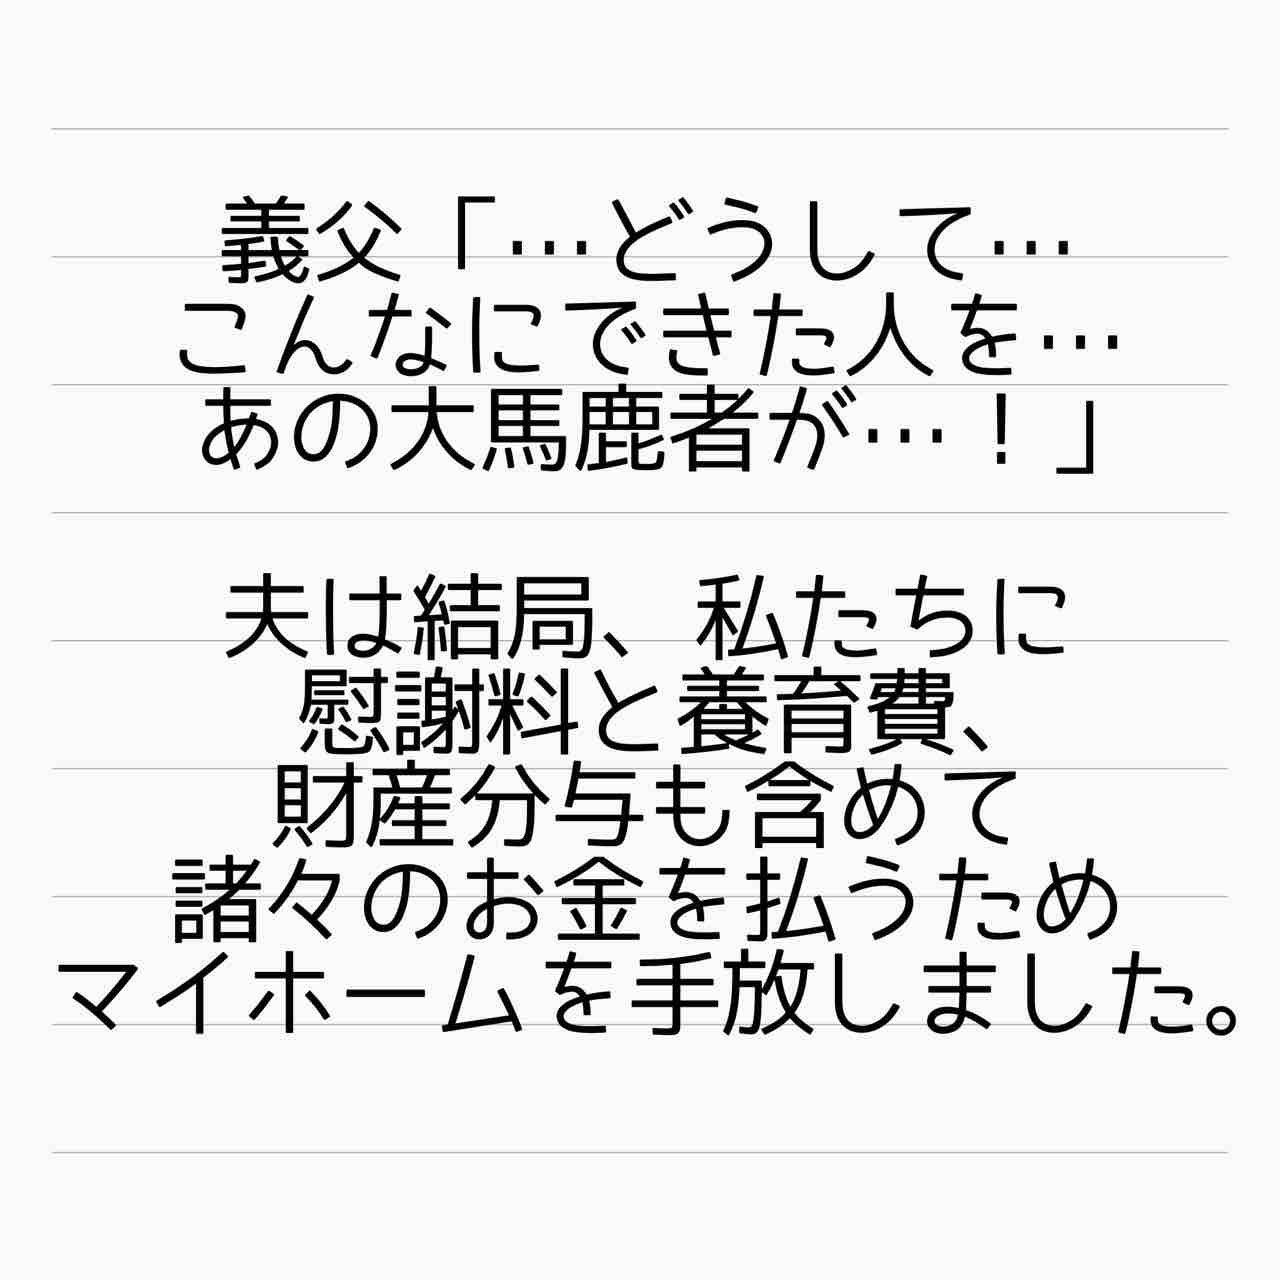 義父「…どうして…
こんなにできた人を…
あの大馬鹿者が…！」
夫は結局、私たちに
慰謝料と養育費、
財産分与も含めて
諸々のお金を払うため
マイホームを手放しました。